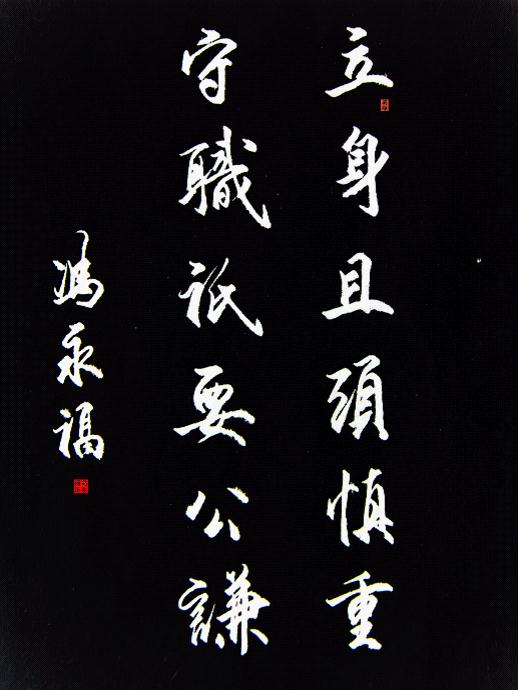 立身且須慎重
守職祇要公謙
馮永福